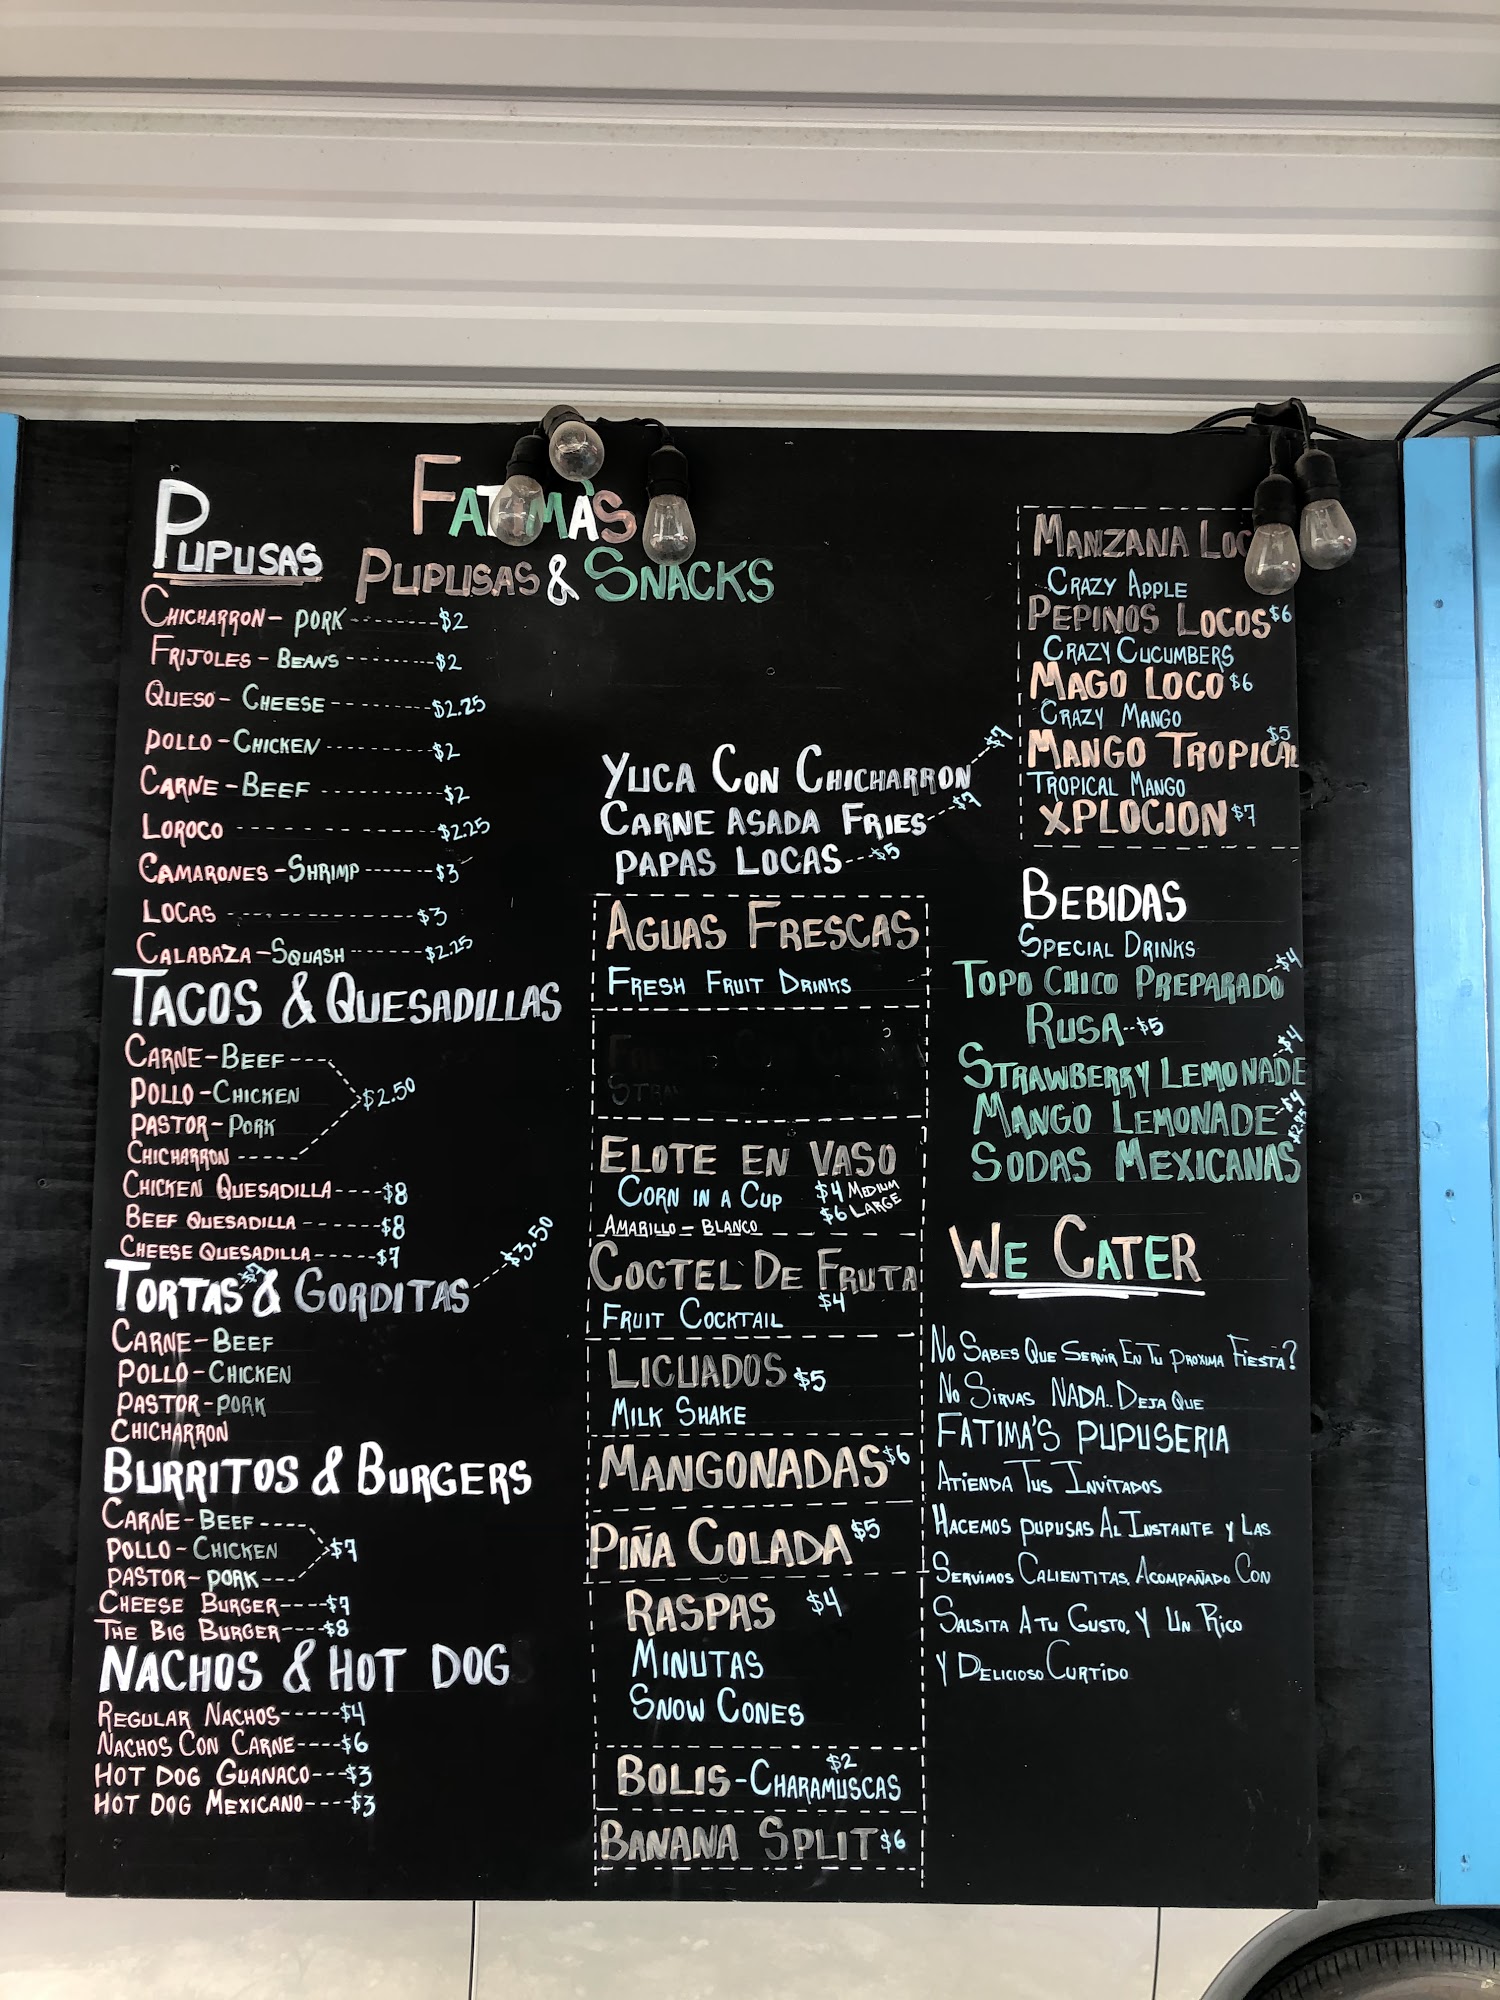 FATIMA'S
PUPUSAS & SNACKS
PUPUSAS
CHICHARRON - PORK --------$2
FRIJOLES - BEANS --------$2
QUESO - CHEESE --------$2.25
POLLO - CHICKEN --------$2
CARNE - BEEF --------$2
LOROCO --------$2.25
CAMARONES - SHRIMP -------$3
LOCAS --------$3
CALABAZA - SQUASH ------$2.25
TACOS & QUESADILLAS
CARNE - BEEF ---
POLLO - CHICKEN $2.50
PASTOR - PORK
CHICHARRON -----
CHICKEN QUESADILLA ----$8
BEEF QUESADILLA ------$8
CHEESE QUESADILLA -----$7
TORTAS $7 & GORDITAS ---$3.50
CARNE - BEEF
POLLO - CHICKEN
PASTOR - PORK
CHICHARRON
BURRITOS & BURGERS
CARNE - BEEF ----
POLLO - CHICKEN $7
PASTOR - PORK ---
CHEESE BURGER ----$7
THE BIG BURGER ----$8
NACHOS & HOT DOG
REGULAR NACHOS -----$4
NACHOS CON CARNE ----$6
HOT DOG GUANACO ---$3
HOT DOG MEXICANO ----$3
YUCA CON CHICHARRON ---$7
CARNE ASADA FRIES ---$7
PAPAS LOCAS ---$5
AGUAS FRESCAS
FRESH FRUIT DRINKS
ELOTE EN VASO
CORN IN A CUP $4 MEDIUM
$6 LARGE
AMARILLO - BLANCO
COCTEL DE FRUTA
FRUIT COCKTAIL $4
LICUADOS $5
MILK SHAKE
MANGONADAS $6
PIÑA COLADA $5
RASPAS $4
MINUTAS
SNOW CONES
BOLIS - CHARAMUSCAS $2
BANANA SPLIT $6
MANZANA
CRAZY APPLE
PEPINOS LOCOS $6
CRAZY CUCUMBERS
MAGO LOCO $6
CRAZY MANGO
MANGO TROPICAL $5
TROPICAL MANGO
XPLOCION $7
BEBIDAS
SPECIAL DRINKS
TOPO CHICO PREPARADO $4
RUSA --$5
STRAWBERRY LEMONADE $4
MANGO LEMONADE $4
SODAS MEXICANAS $2.25
WE CATER
NO SABES QUE SERVIR EN TU PROXIMA FIESTA?
NO SIRVAS NADA.. DEJA QUE
FATIMA'S PUPUSERIA
ATIENDA TUS INVITADOS
HACEMOS PUPUSAS AL INSTANTE Y LAS
SERVIMOS CALIENTITAS, ACOMPAÑADO CON
SALSITA A TU GUSTO, Y UN RICO
Y DELICIOSO CURTIDO